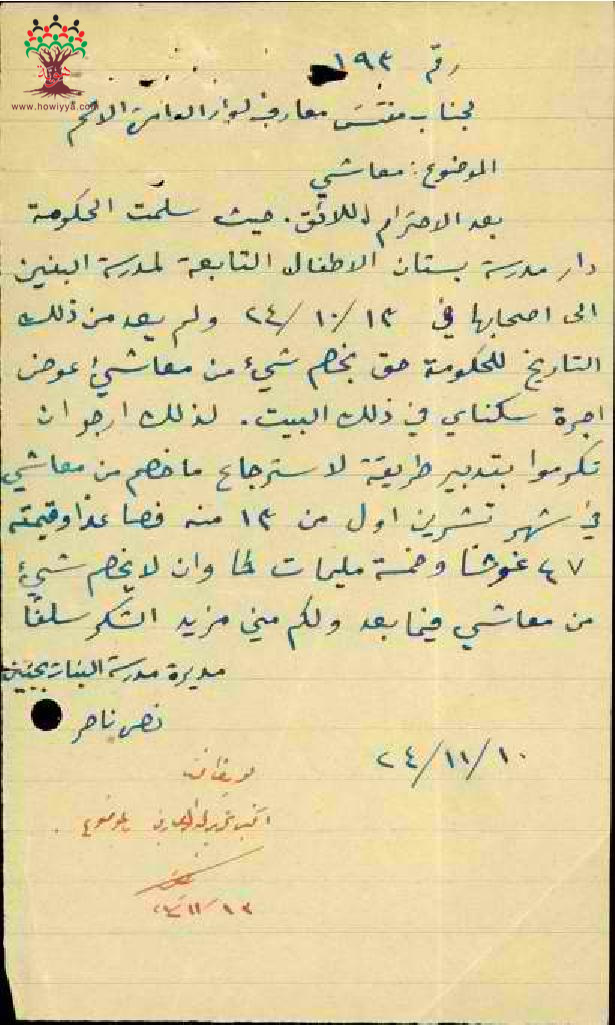 www.howiyya.com
رقم ١٩٣
لجناب مفتش معارف لواء السامرة الافخم
الموضوع: معاشي
بعد الاحترام اللائق. حيث سلمت الحكومة
دار مدرسة بستان الاطفال التابعة لمدرسة البنين
الى اصحابها في ١٣/١٠/٢٤ ولم يعد من ذلك
التاريخ للحكومة حق بخصم شيء من معاشي عوض
اجرة سكناي في ذلك البيت. لذلك ارجو ان
تكرموا بتدبير طريقة لاسترجاع ما خصم من معاشي
في شهر تشرين اول من ١٣ منه فصاعدا وقيمته
٤٧ غرشا وخمسة مليمات كما وان لا يخصم شيء
من معاشي فيما بعد ولكم مني مزيد الشكر سلفا
مديرة مدرسة البنات بجنين
ناصر
١٠/١١/٢٤